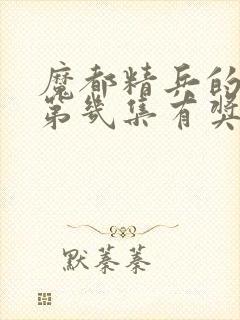 魔都精兵的
第几集有奖
默蓁蓁